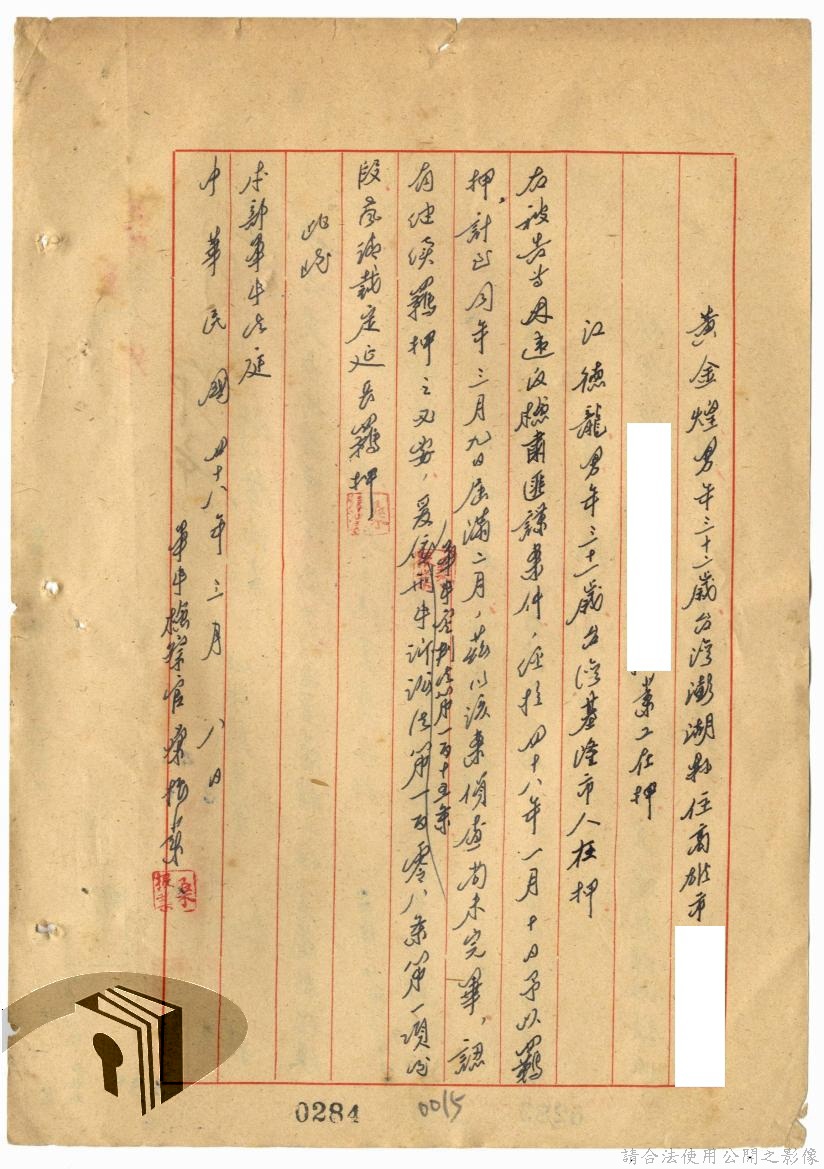 黃金煌男年三十二歲台灣澎湖縣住高雄市
業工在押
江德龍男年三十一歲台灣基隆市人在押
右被告等因違反檢肅匪諜案件，經於四十八年一月十日予以羈
押，計至同年三月九日屆滿二月，茲以該案偵查尚未完畢，認
有繼續羈押之必要，爰依刑事訴訟法第一百零八條第一項後
軍事審判法第一百十五條
段聲請裁定延長羈押
此致
本部軍事法庭
中華民國四十八年三月八日
軍事檢察官桑振業
桑振業
0284
0015
請合法使用公開之影像